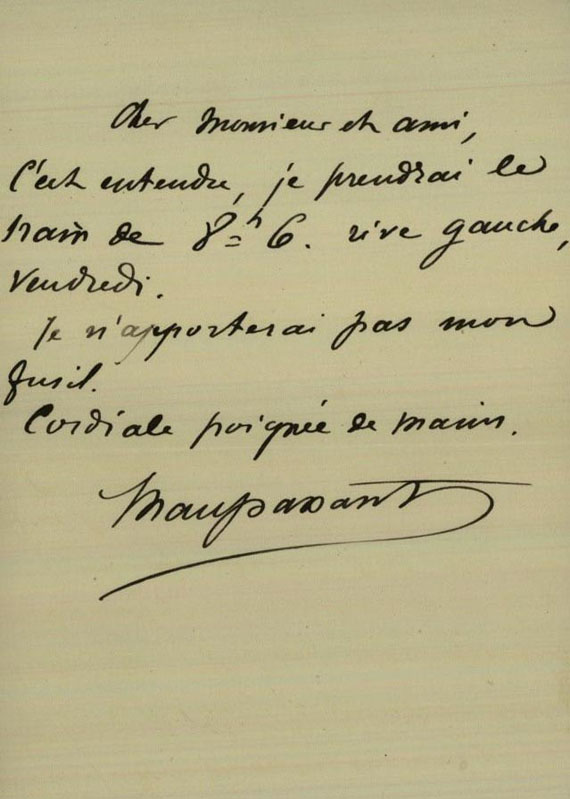 Cher Monsieur et ami,
C'est entendu, je prendrai le
train de 8=h 6. rive gauche,
Vendredi.
Je n'apporterai pas mon
fusil.
Cordiale poignée de main.
Maupassant